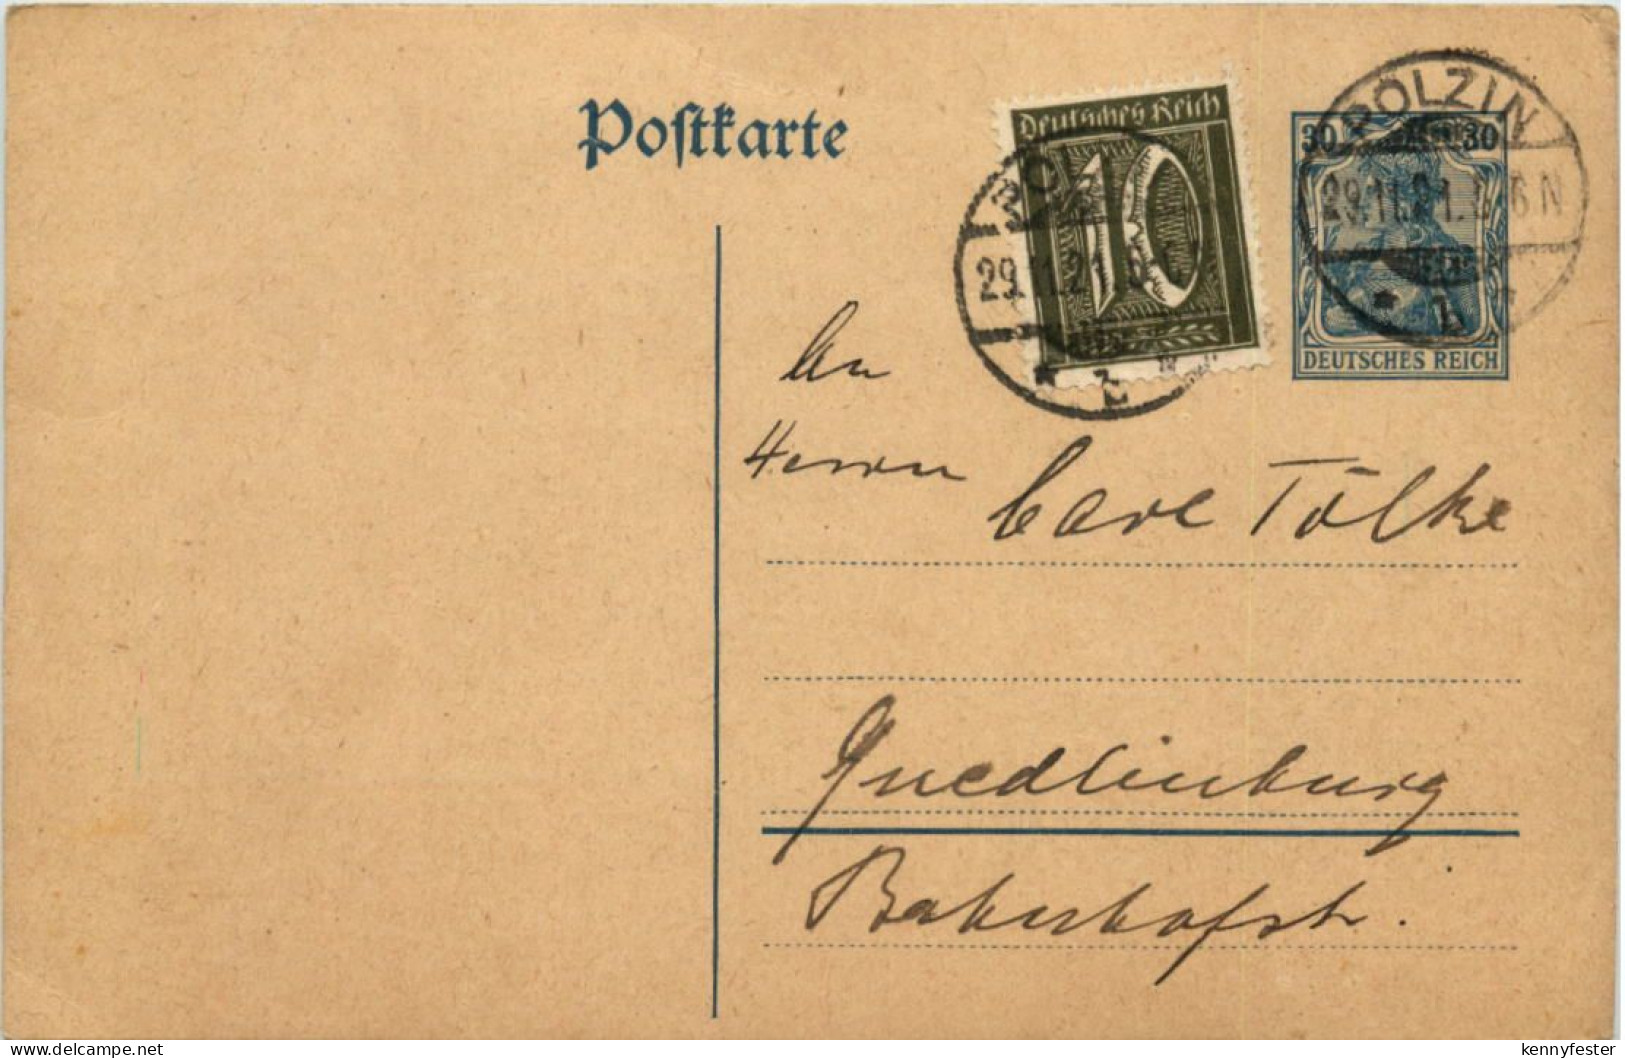 Postkarte
Deutsches Reich
10
30 30
POLZIN
29.11.21. 5-6 N
DEUTSCHES REICH
29.11.21.
An
Herrn Carl Tölke
Quedlinburg
Bahnhofstr.
delcampe.net
kennyfester